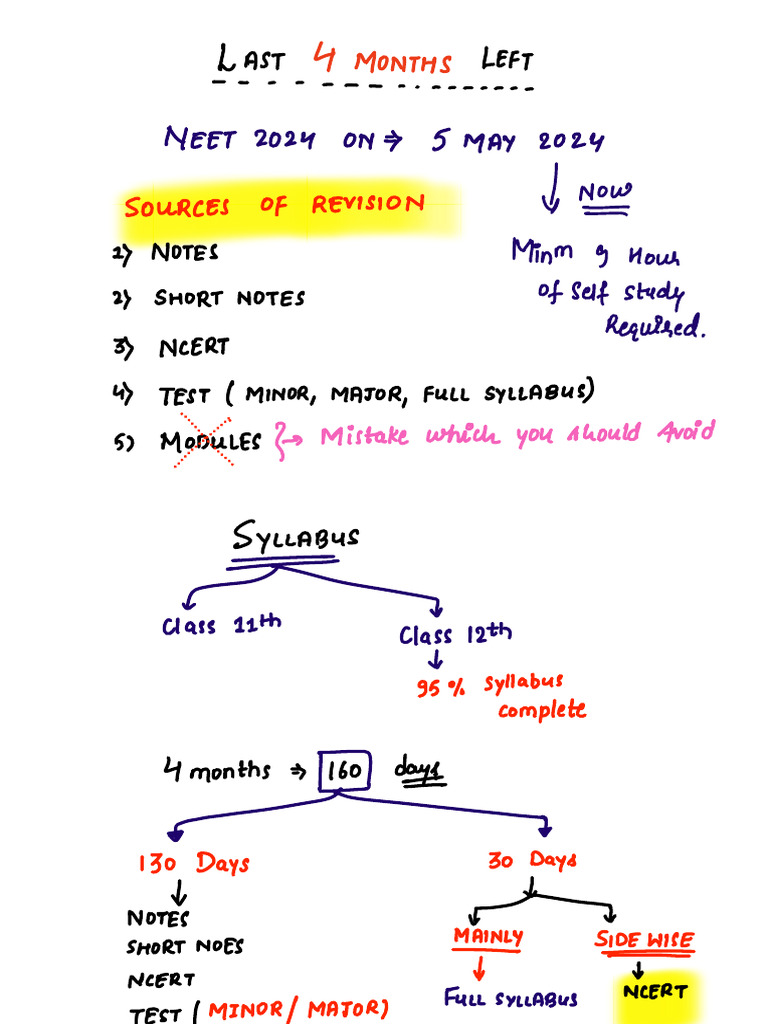 LAST 4 MONTHS LEFT
NEET 2024 ON ⇒ 5 MAY 2024
NOW
SOURCES OF REVISION
Minm 9 Hour
of Self Study
Required.
1) NOTES
2) SHORT NOTES
3) NCERT
4) TEST ( MINOR, MAJOR, FULL SYLLABUS)
5) MODULES } → Mistake which you should Avoid
SYLLABUS
Class 11th
Class 12th
95% Syllabus
complete
4 months ⇒ 160 days
130 Days
30 Days
NOTES
SHORT NOES
NCERT
TEST ( MINOR / MAJOR)
MAINLY
SIDE WISE
FULL SYLLABUS
NCERT